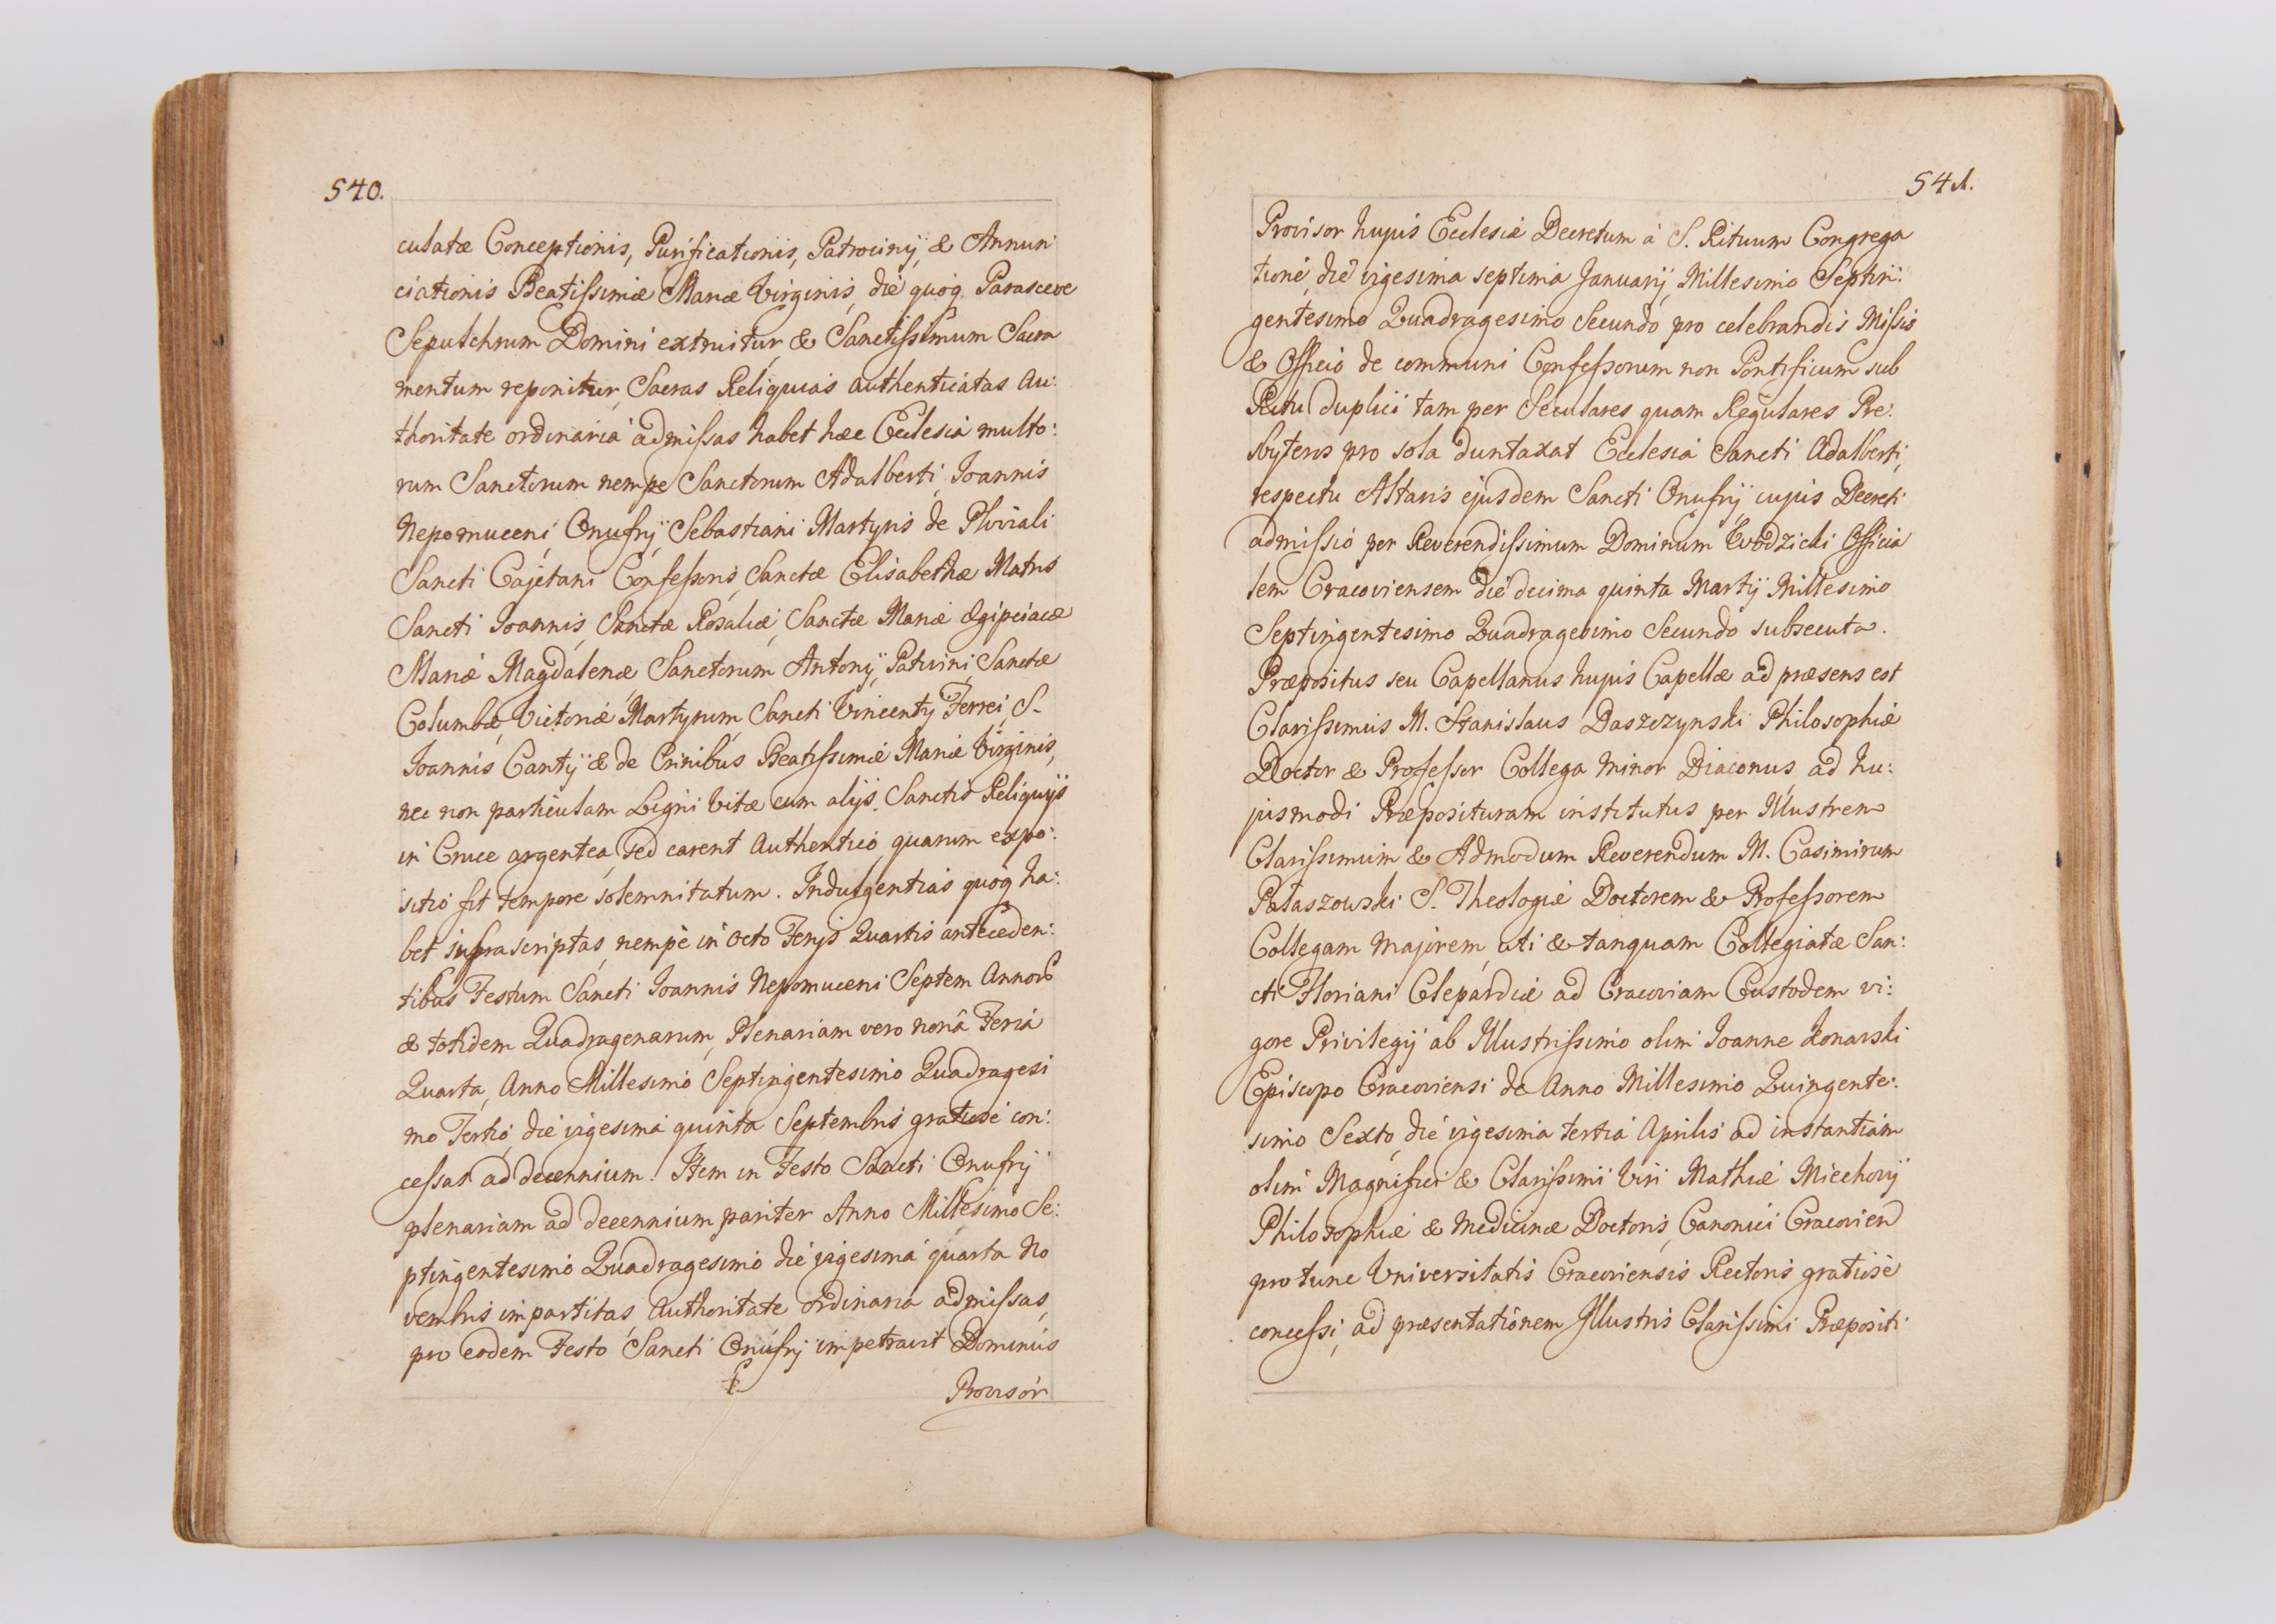 540.
culatæ Conceptionis, Purificationis, Patrocinÿ, & Annun
ciationis Beatissimæ Mariæ Virginis, die quoq Parasceve
Sepulchrum Domini extruitur, & Sanctissimum Sacra
mentum reponitur, Sacras Reliquias authenticatas Au:
thoritate ordinaria admissas habet hæc Ecclesia multo:
rum Sanctorum nempe Sanctorum Adalberti, Joannis
Nepomuceni, Onufrÿ, Sebastiani Martyris de Pluviali
Sancti Cajetani Confessoris, Sanctæ Elisabethæ Matris
Sancti Joannis, Sanctæ Rosaliæ, Sanctæ Mariæ Ægipciacæ
Mariæ Magdalenæ Sanctorum Antonÿ, Patuini, Sanctæ
Columbæ, Victoriæ Martyrum, Sancti Vincenty Ferrei, S.
Joannis Cantÿ & de Crinibus Beatissimæ Mariæ Virginis,
nec non particulam Ligni Vitæ cum alÿs Sanctis Reliquÿs
in Cruce argentea, sed carent Authentico, quarum expo:
sitio fit tempore solemnitatum. Indulgentias quoq ha:
bet infrascriptas, nempe in octo Ferÿs Quartis anteceden:
tibus Festum Sancti Joannis Nepomuceni Septem Annorũ
& totidem Quadragenarum, Plenariam vero nonâ Feriâ
Quarta, Anno Millesimo Septingentesimo Quadragesi
mo Tertio, die vigesima quinta Septembris gratiose con:
cessas ad decennium. Item in Festo Sancti Onufrÿ
plenariam ad decennium pariter Anno Millesimo Se:
ptingentesimo Quadragesimo die vigesima quarta No
vembris impartitas, Authoritate ordinaria admissas,
pro eodem Festo Sancti Onufrÿ impetravit Dominus
Provisor
541.
Provisor hujus Ecclesiæ Decretum à S. Rituum Congrega
tione, die vigesima septima Januarÿ, Millesimo Septin:
gentesimo Quadragesimo Secundo pro celebrandis Missis
& Officio de communi Confessorum non Pontificum sub
Ritu duplici tam per Seculares quam Regulares Pre:
sbyteros pro sola duntaxat Ecclesia Sancti Adalberti,
respectu Altaris ejusdem Sancti Onufrÿ, cujus Decreti
admissio per Reverendissimum Dominum Evodzicki Officia
lem Cracoviensem die decima quinta Martÿ Millesimo
Septingentesimo Quadragesimo Secundo subsecuta.
Præpositus seu Capellanus hujus Capellæ ad præsens est
Clarissimus M. Stanislaus Daszczynski Philosophiæ
Doctor & Professor Collega Minor Diaconus, ad hu:
jusmodi Præposituram institutus per Illustrem
Clarissimum & Admodum Reverendum M. Casimirum
Pałaszowski S. Theologiæ Doctorem & Professorem
Collegam Majorem, uti & tanquam Collegiatæ San:
cti Floriani Clepardiæ ad Cracoviam Custodem vi:
gore Privilegÿ ab Illustrissimo olim Joanne Konarski
Episcopo Cracoviensi de Anno Millesimo Quingente:
simo Sexto, die vigesima tertia Aprilis ad instantiam
olim Magnifici & Clarissimi Viri Mathiæ Miechovÿ
Philosophiæ & Medicinæ Doctoris, Canonici Cracovien
pro tunc Universitatis Cracoviensis Rectoris gratiose
concessi, ad præsentationem Illustris Clarissimi Præpositi